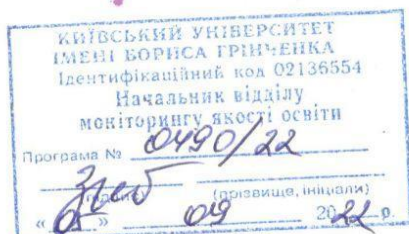 КИЇВСЬКИЙ УНІВЕРСИТЕТ
ІМЕНІ БОРИСА ГРІНЧЕНКА
Ідентифікаційний код 02136554
Начальник відділу
моніторингу якості освіти
Програма № 0490/22
(підпис) (прізвище, ініціали)
« » 09 2022 р.